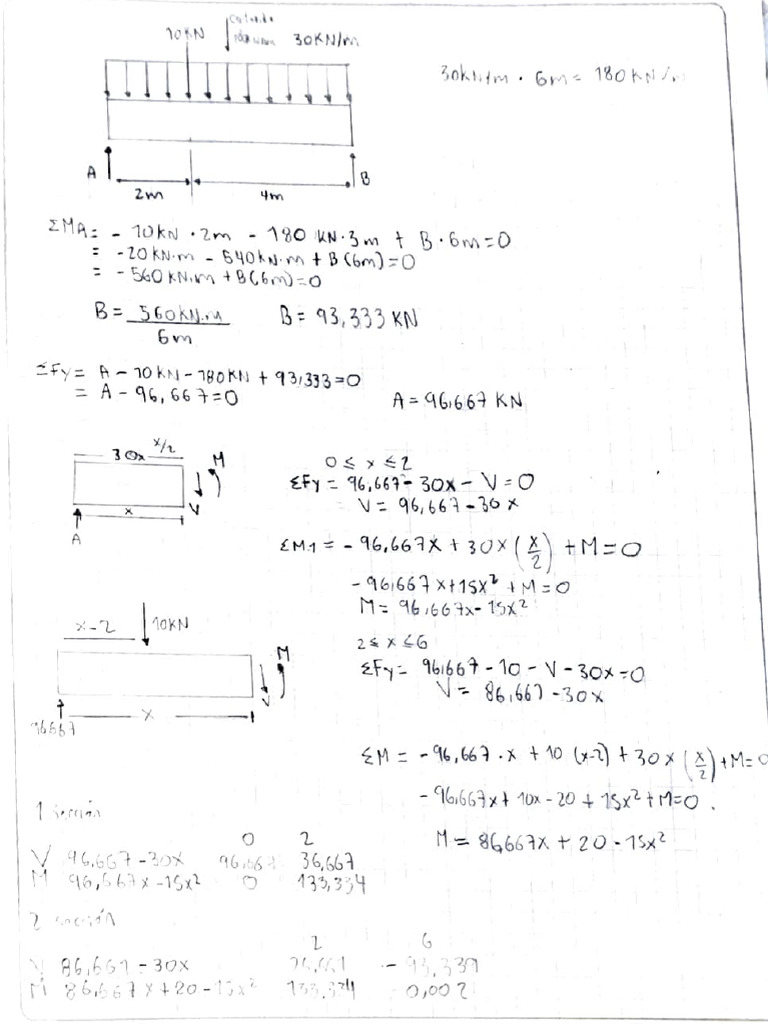 10KN
30KN/m
30kN/m · 6m = 180 KN/
A
B
2m
4m
ΣMA= - 10KN · 2m - 180 KN · 3m + B · 6m=0
= -20 KN·m - 540KN·m + B(6m)=0
= - 560 KN·m + B(6m)=0
B= 560KN·m / 6m
B= 93,333 KN
ΣFy= A - 10KN - 180KN + 93,333=0
= A - 96,667=0
A = 96,667 KN
x/2
30x
M
V
x
A
0 ≤ x ≤ 2
ΣFy = 96,667 - 30x - V = 0
V = 96,667 - 30x
ΣM1 = - 96,667x + 30x (x/2) + M = 0
- 96,667x+15x² + M = 0
M = 96,667x - 15x²
x-2
10KN
M
V
x
96,667
2 ≤ x ≤ 6
ΣFy= 96,667 - 10 - V - 30x = 0
V = 86,667 - 30x
ΣM = - 96,667 · x + 10 (x-2) + 30x (x/2) + M = 0
- 96,667x + 10x - 20 + 15x² + M=0.
M = 86,667x + 20 - 15x²
1 sección
0 2
V 96,667 - 30x 96,667 36,667
M 96,667x - 15x² 0 133,334
2 sección
2 6
V 86,667 - 30x - 93,339
M 86,667x + 20 - 15x² 133,334 0,002